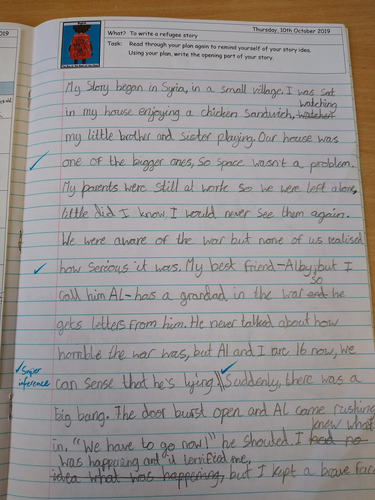 2019
Thursday, 10th October 2019
What? To write a refugee story
Task: Read through your plan again to remind yourself of your story ideas.
Using your plan, write the opening part of your story.
My story began in Syria, in a small village. I was sat
watching
in my house enjoying a chicken sandwich, watched
my little brother and sister playing. Our house was
one of the bigger ones, so space wasn't a problem.
My parents were still at work so we were left alone,
little did I know, I would never see them again.
We were aware of the war but none of us realised
how serious it was. My best friend-Alby, but I
so
call him AL-has a grandad in the war and he
gets letters from him. He never talked about how
horrible the war was, but Al and I are 16 now, we
Super
inference
can sense that he's lying.\\ Suddenly, there was a
big bang. The door burst open and AL came rushing
knew what
in. "We have to go now!" he shouted. I had no
was happening and it terrified me,
idea what was happening, but I kept a brave face